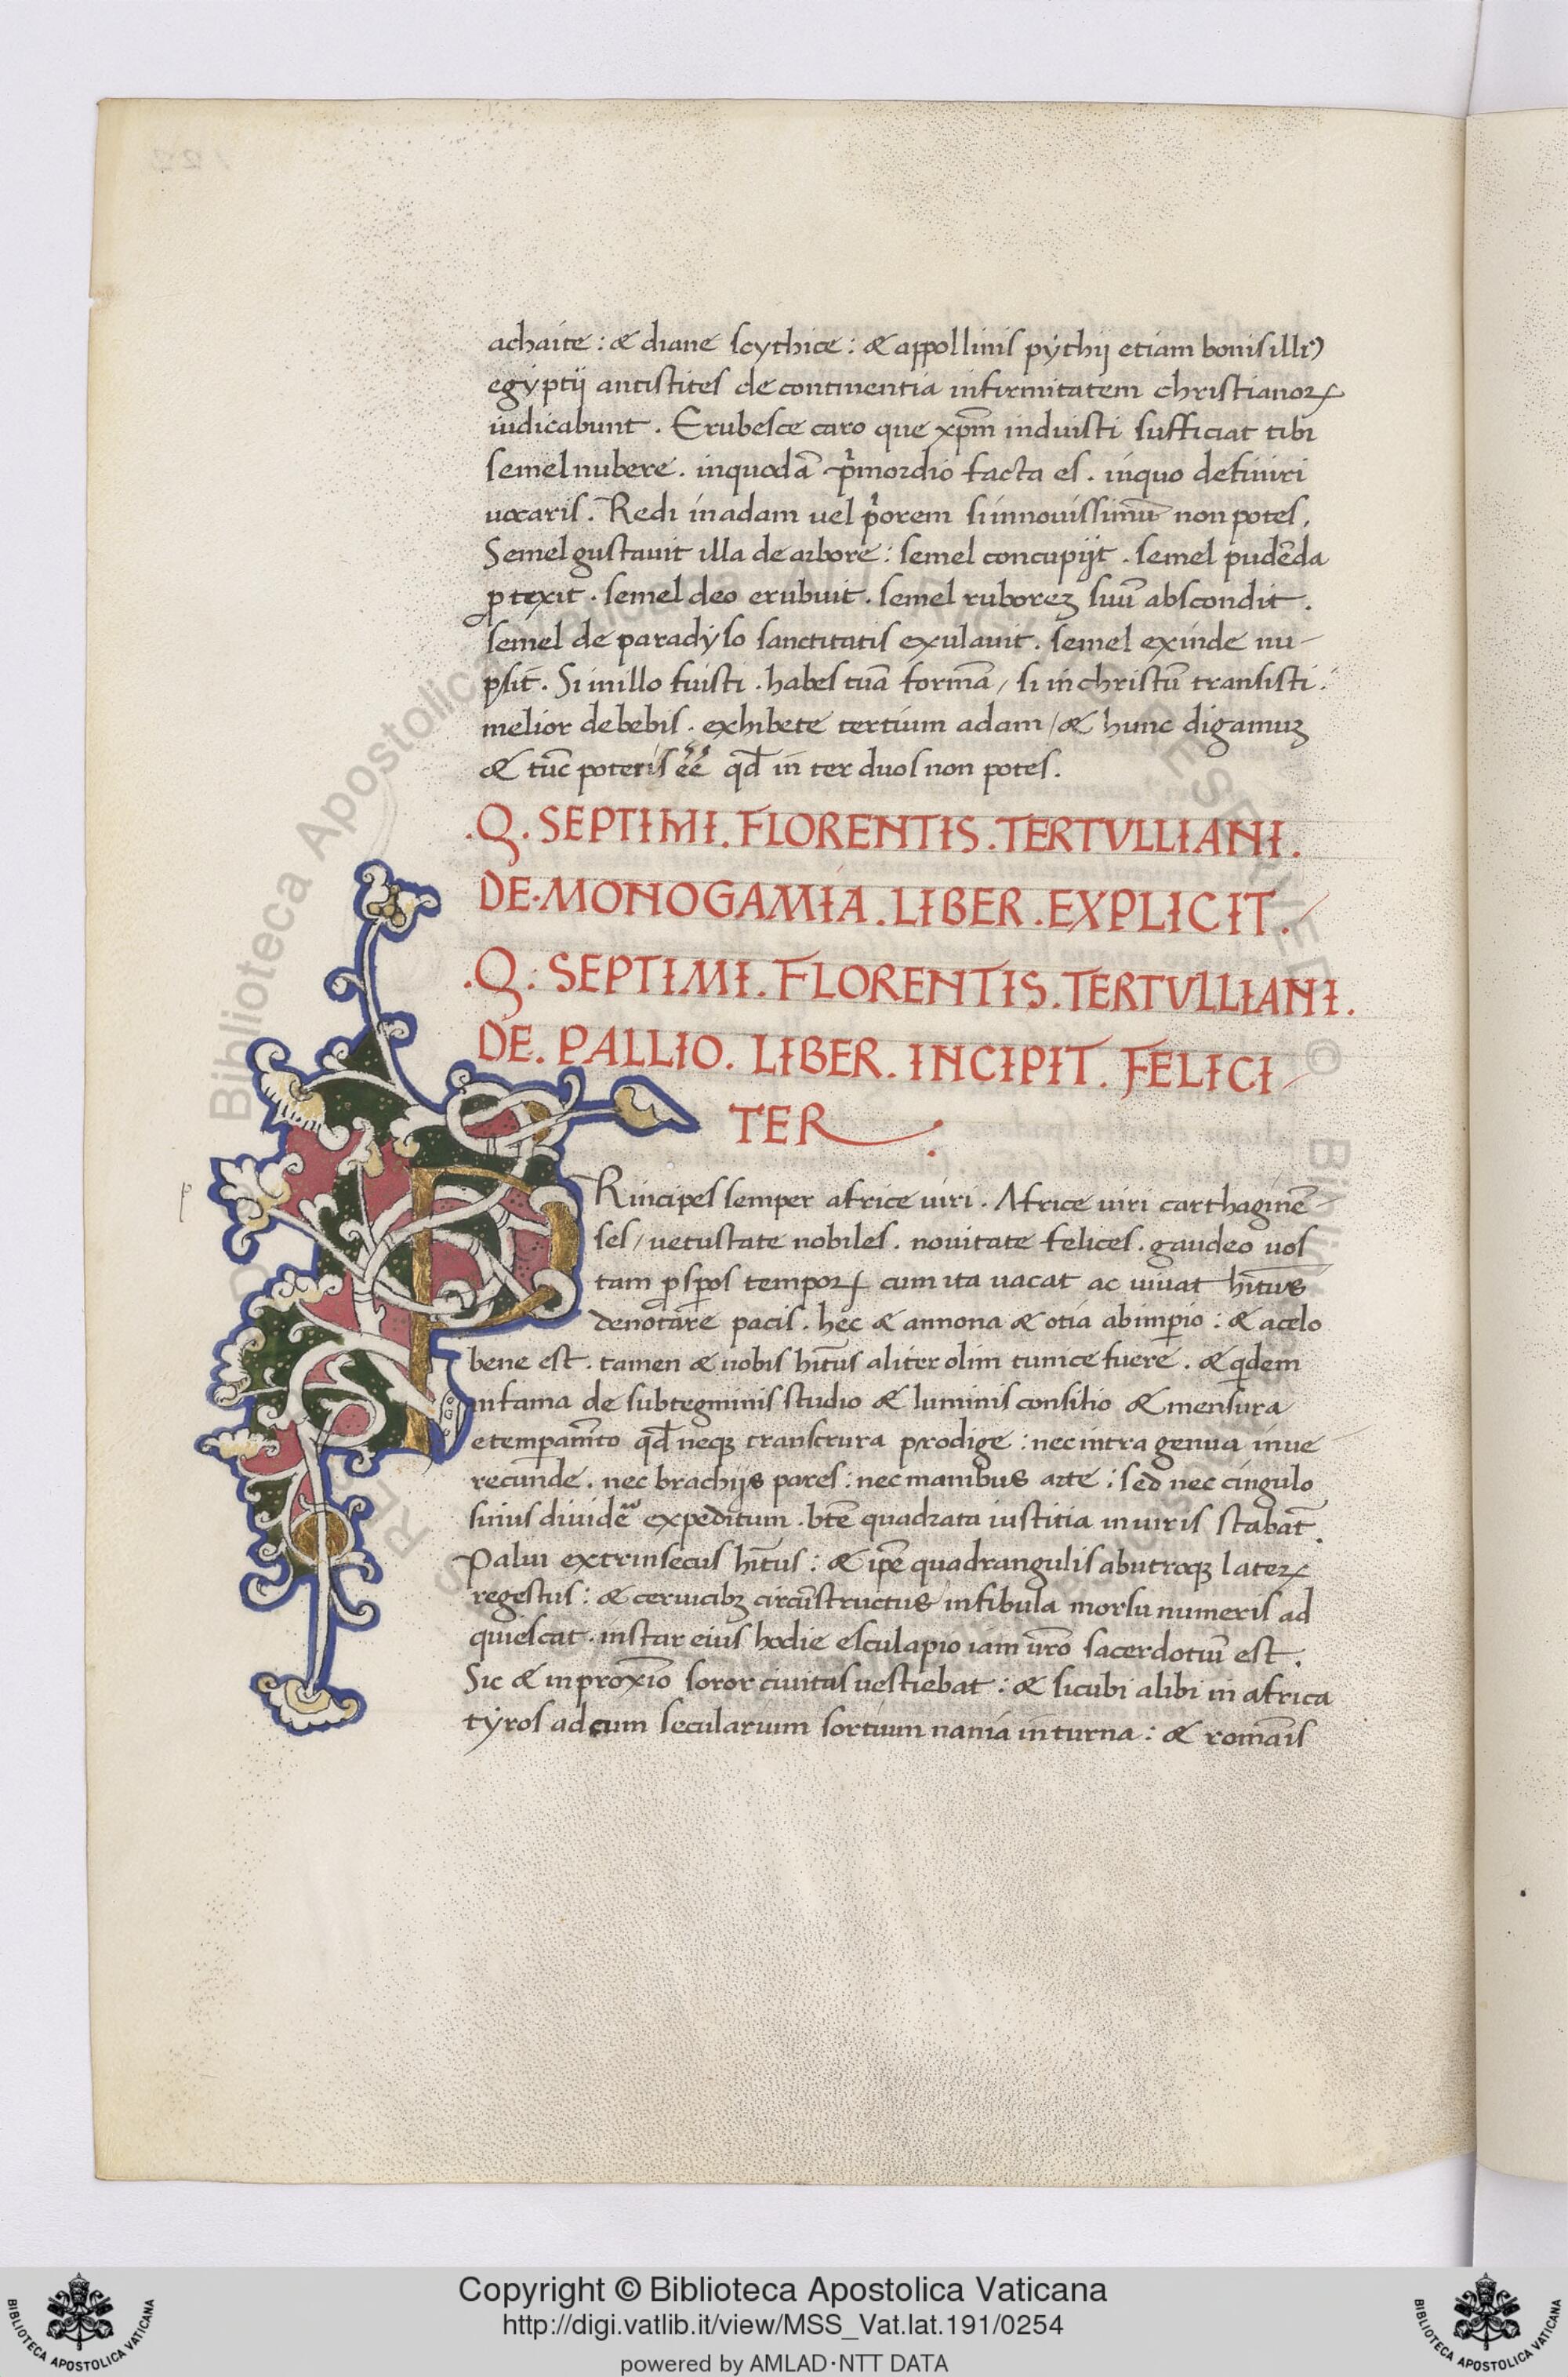 achaice : & diane scythice : & appollinis pythij etiam bonis illr
egyptii antistites de continentia infirmitatem christianoꝝ
iudicabunt . Erubesce caro que xp̄m induisti sufficiat tibi
semel nubere . inquodā prmordio facta es . inquo definiri
uocaris . Redi inadam uel prorem si innouissimū non potes .
Semel gustauit illa de arbore : semel concupijt . semel pudēda
ꝓtexit . semel deo erubuit . semel ruboreꝫ suū abscondit .
semel de paradyso sanctitatis exulauit . semel exinde nu-
psit . Si inillo fuisti . habes tuā formā / si in christū transisti :
melior debebis . exhibete tertium adam / & hunc digamuꝫ
& tūc poteris eē qd̄ in ter duos non potes .
.Q. SEPTIMI. FLORENTIS .TERTVLLIANI .
DE.MONOGAMIA .LIBER .EXPLICIT .
.Q. SEPTIMI. FLORENTIS. TERTVLLIANI .
DE. PALLIO. LIBER. INCIPIT. FELICI
TER .
p
PRincipes semper africe uiri . Africe uiri carthaginē-
ses / uetustate nobiles . nouitate felices . gaudeo uos
tam ꝓsꝑos tempoꝝ cum ita uacat ac iuuat hītus
denotare pacis . hec & annona & otia ab imꝑio : & acelo
bene est . tamen & uobis hītus aliter olim tunice fuere . & qdem
infama de subtegminis studio & luminis consilio & mensura
etemꝑam̄to qd̄ neqꝫ transtrura prodige : nec intra genua inue
recunde . nec brachijs pares : nec manibus arte : sed nec cingulo
sinus diuidē expeditum . btē quadrata iustitia inuiris stabāt .
Palui extrinsecus hītus : & ipē quadrangulis abutroqꝫ lateꝝ
regestus : & ceruicibꝫ circūstructus infibula morsu numeris ad
quiescat . instar eius hodie esculapio iam ūro sacerdotiū est .
Sic & inproxīo soror ciuitas uestiebat : & sicubi alibi in africa
tyros ad cum secularium sortium nania inturna : & romāis
Copyright © Biblioteca Apostolica Vaticana
http://digi.vatlib.it/view/MSS_Vat.lat.191/0254
powered by AMLAD·NTT DATA
BIBLIOTECA APOSTOLICA VATICANA
BIBLIOTECA APOSTOLICA VATICANA